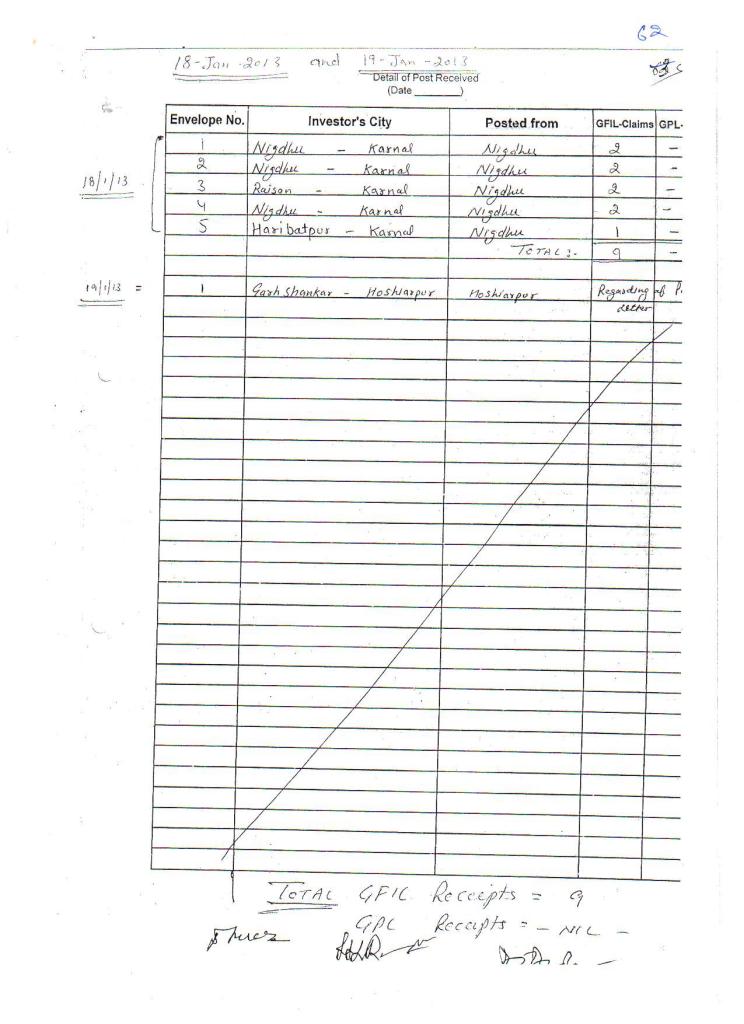 62
18-Jan-2013 and 19-Jan-2013
Detail of Post Received
(Date ________)
Envelope No. Investor's City Posted from GFIL-Claims GPL-
18/1/13 1 Nigdhu - Karnal Nigdhu 2 -
2 Nigdhu - Karnal Nigdhu 2 -
3 Raison - Karnal Nigdhu 2 -
4 Nigdhu - Karnal Nigdhu 2 -
5 Haribatpur - Karnal Nigdhu 1 -
TOTAL :- 9 -
19/1/13 = 1 Garh Shankar - Hoshiarpur Hoshiarpur Regarding of P.
Letter
TOTAL GFIL Receipts = 9
GPL Receipts = - NIL -